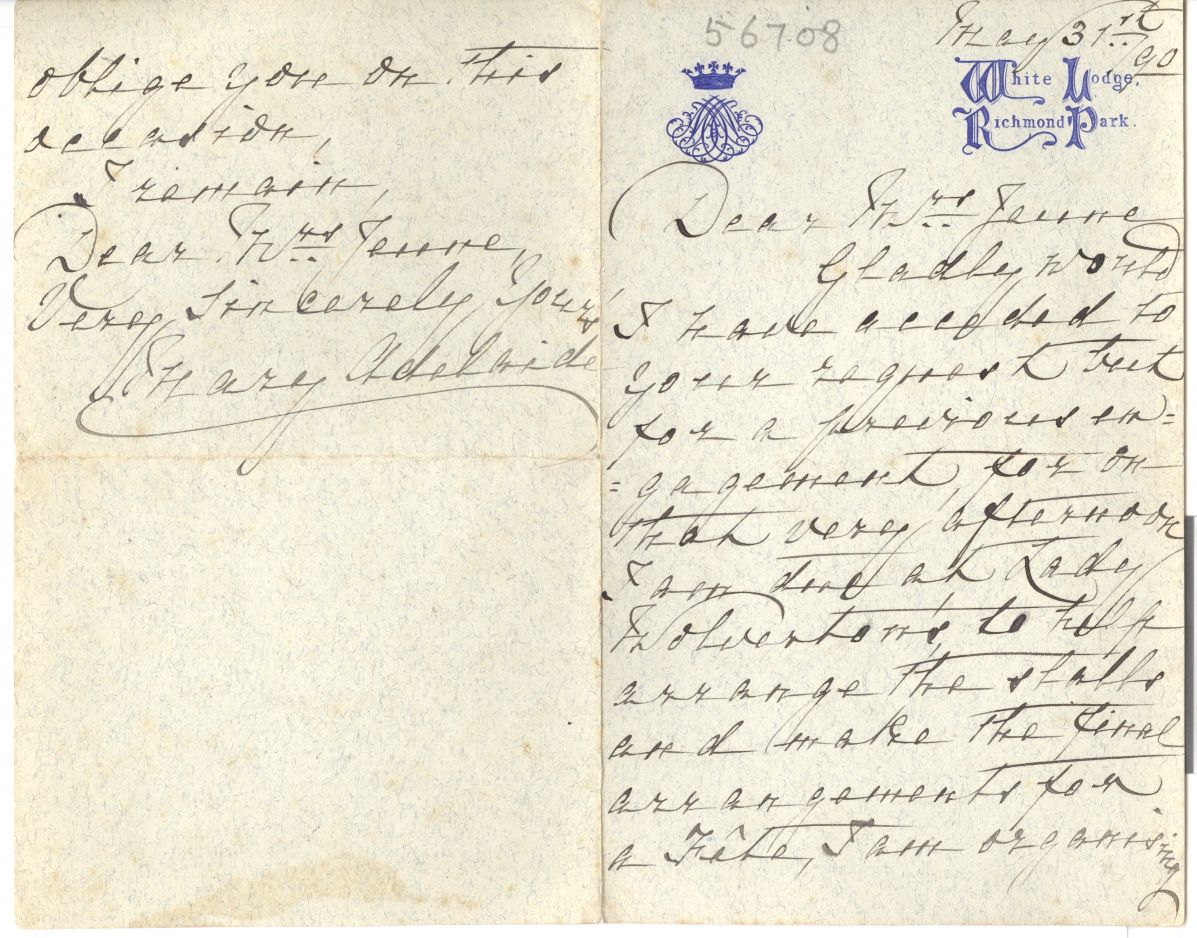 56708
May 31st/90
White Lodge,
Richmond Park.
Dear Mrs. Jeune
Gladly would
I have acceded to
your request but
for a previous en=
=gagement, for on
that very afternoon
I am due at Lady
Wolverton's, to help
arrange the stalls
and make the final
arrangements for
a Fête, I am organising
oblige you on this
occasion,
I remain,
Dear Mrs. Jeune,
Very sincerely Your's
Mary Adelaide